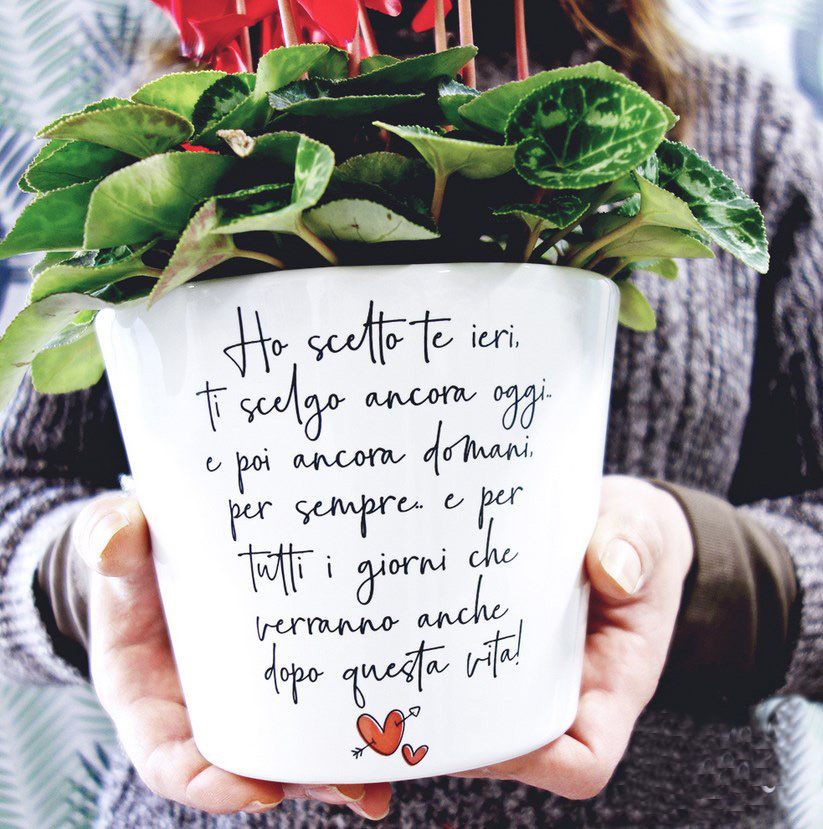 Ho scelto te ieri,
ti scelgo ancora oggi..
e poi ancora domani,
per sempre.. e per
tutti i giorni che
verranno anche
dopo questa vita!